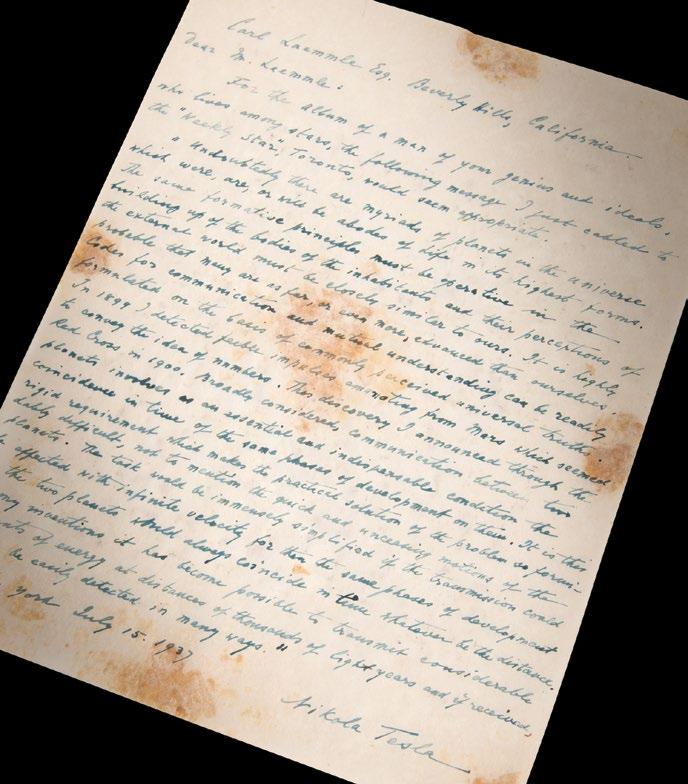 Carl Laemmle Esq. Beverly Hills, California.
Dear Mr. Laemmle:
For the album of a man of your genius and ideals,
who lives among stars, the following message I just cabled to
the "Weekly Star", Toronto, would seem appropriate.
"Undoubtedly there are myriads of planets in the universe
which were, are, or will be abodes of life in its highest forms.
The same formative principles must be operative in the
building up of the bodies of the inhabitants and their perceptions of
the external world must be closely similar to ours. It is highly
probable that many are as far, or way more, advanced than ourselves.
Codes for communication and mutual understanding can be readily
formulated on the basis of commonly perceived universal truths.
In 1899 I detected feeble impulses emanating from Mars which seemed
to convey the idea of numbers. This discovery I announced through the
Red Cross in 1900. Broadly considered communication between two
planets involves as an essential and indispensable condition the
coincidence in time of the same phases of development on them. It is this
rigid requirement which makes the practical solution of the problem so formi-
dably difficult, not to mention the quick and unceasing motions of the
planets. The task would be immensely simplified if the transmission could
be effected with infinite velocity for then the same phases of development
the two planets would always coincide in time whatever be the distance.
my inventions it has become possible to transmit considerable
nts of energy at distances of thousands of light years and if received,
be easily detected in many ways."
York July 15. 1937
Nikola Tesla